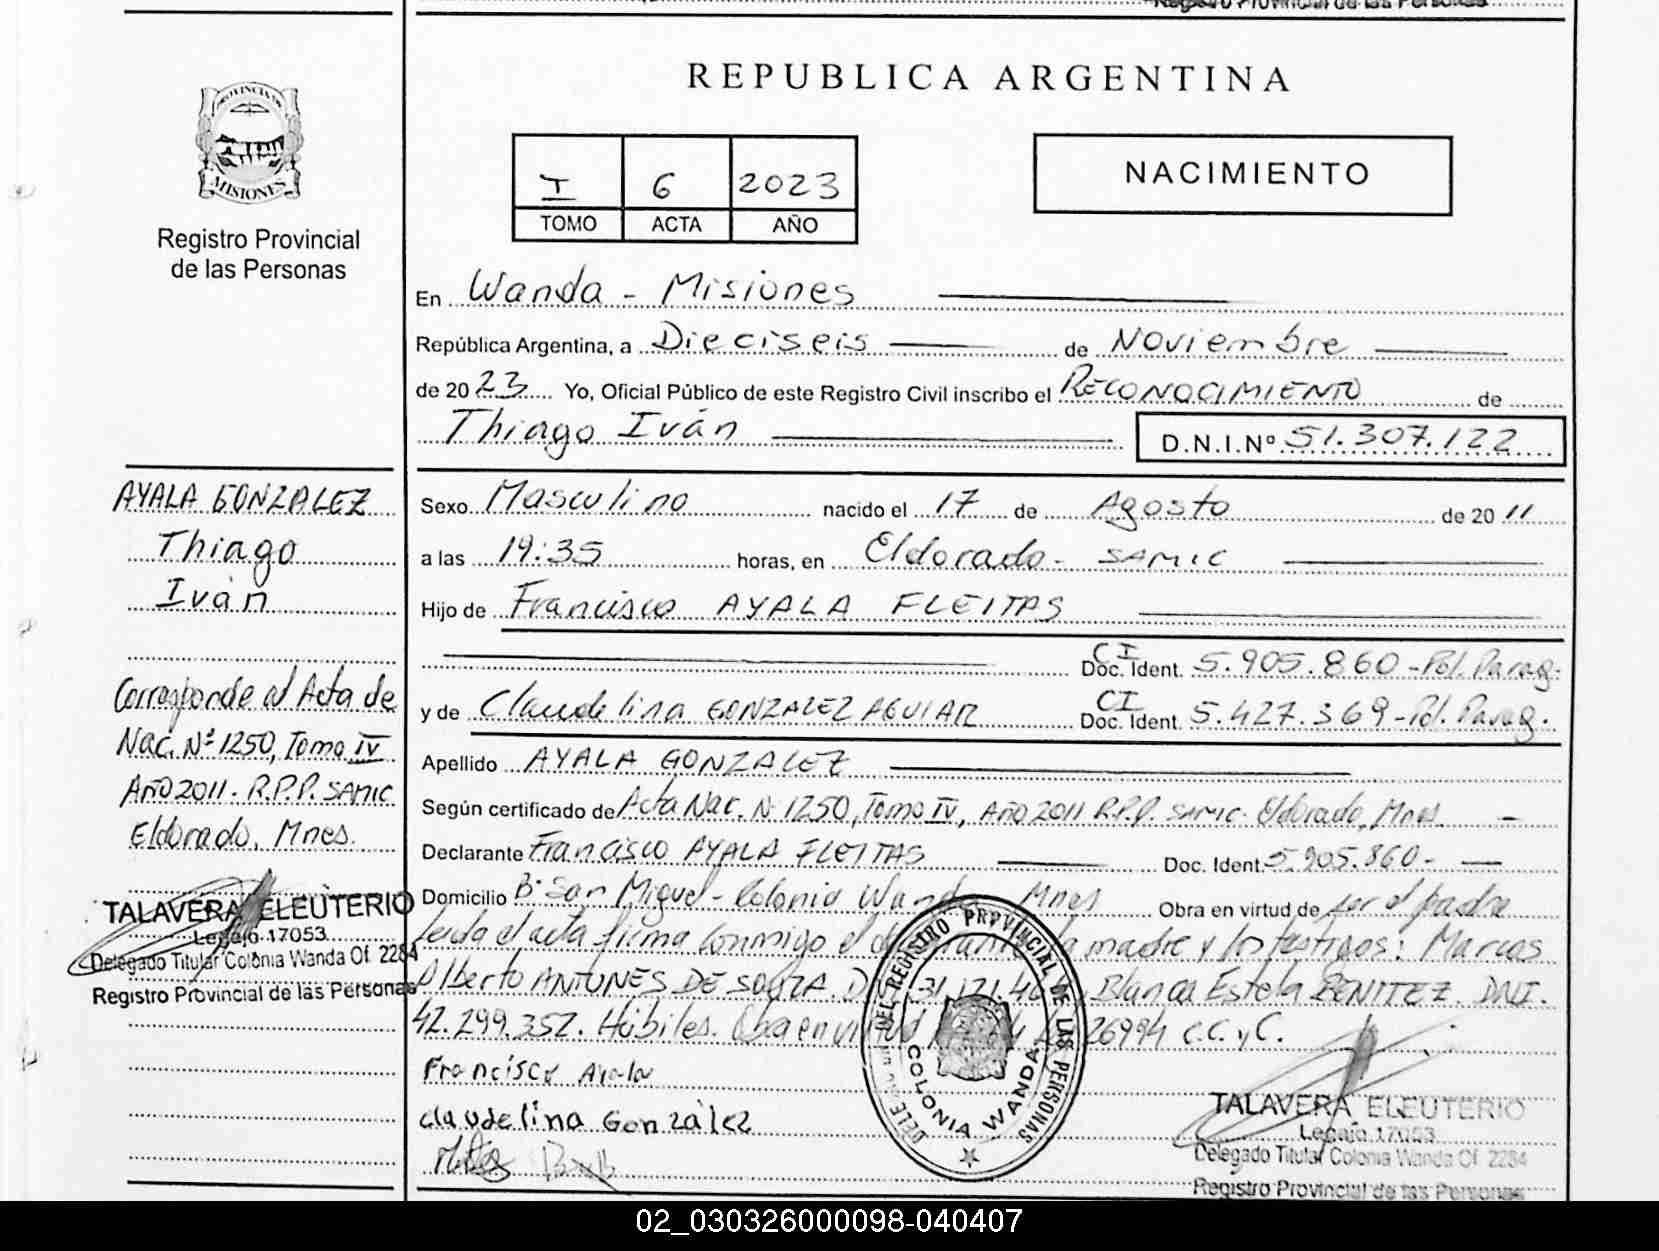 REPUBLICA ARGENTINA
PROVINCIA DE
MISIONES
Registro Provincial
de las Personas
I 6 2023
TOMO ACTA AÑO
NACIMIENTO
En Wanda - Misiones
República Argentina, a Dieciseis de Noviembre
de 2023 Yo, Oficial Público de este Registro Civil inscribo el RECONOCIMIENTO de
Thiago Iván D.N.I.Nº 51.307.122
AYALA GONZALEZ
Thiago
Iván
Corresponde al Acta de
Nac. Nº 1250, Tomo IV
Año 2011. R.P.P. SAMIC
Eldorado. Mnes.
TALAVERA ELEUTERIO
Legajo 17053
Delegado Titular Colonia Wanda Of. 2284
Registro Provincial de las Personas
Sexo Masculino nacido el 17 de Agosto de 2011
a las 19:35 horas, en Eldorado - SAMIC
Hijo de Francisco AYALA FLEITAS
CI
Doc. Ident. 5.905.860 - Pol. Parag.
y de Claudelina GONZALEZ AGUIAR CI Doc. Ident. 5.427.369 - Pol. Parag.
Apellido AYALA GONZALEZ
Según certificado de Acta Nac. N 1250, Tomo IV, Año 2011 R.P.P. SAMIC. Eldorado, Mnes.
Declarante Francisco AYALA FLEITAS Doc. Ident. 5.905.860-
Domicilio Bº San Miguel - Colonia Wanda Mnes Obra en virtud de ser el padre
el acta firma conmigo el la madre y los testigos: Marcos
Alberto ANTUNES DE SOUZA. Blanca Estela BENITEZ. DNI.
42.299.357. Hábiles. Obra en virtud 26994 C.C. y C.
Francisco Ayala
claudelina Gonzàlez
REGISTRO PROVINCIAL DE LAS PERSONAS
COLONIA WANDA
TALAVERA ELEUTERIO
Legajo 17053
Delegado Titular Colonia Wanda Of. 2284
Registro Provincial de las Personas
02_030326000098-040407